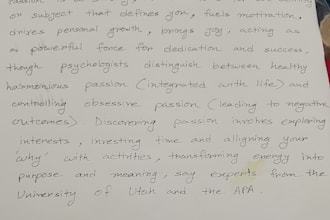 or subject that defines you, fuels motivation,
drives personal growth, brings joy, acting as
a powerful force for dedication and success,
though psychologists distinguish between healthy
harmonious passion (integrated with life) and
controlling obsessive passion (leading to negative
outcomes). Discovering passion involves exploring
interests, investing time and alligning your
'why' with activities, transforming energy into
purpose and meaning, say experts from the
University of Utah and the APA.